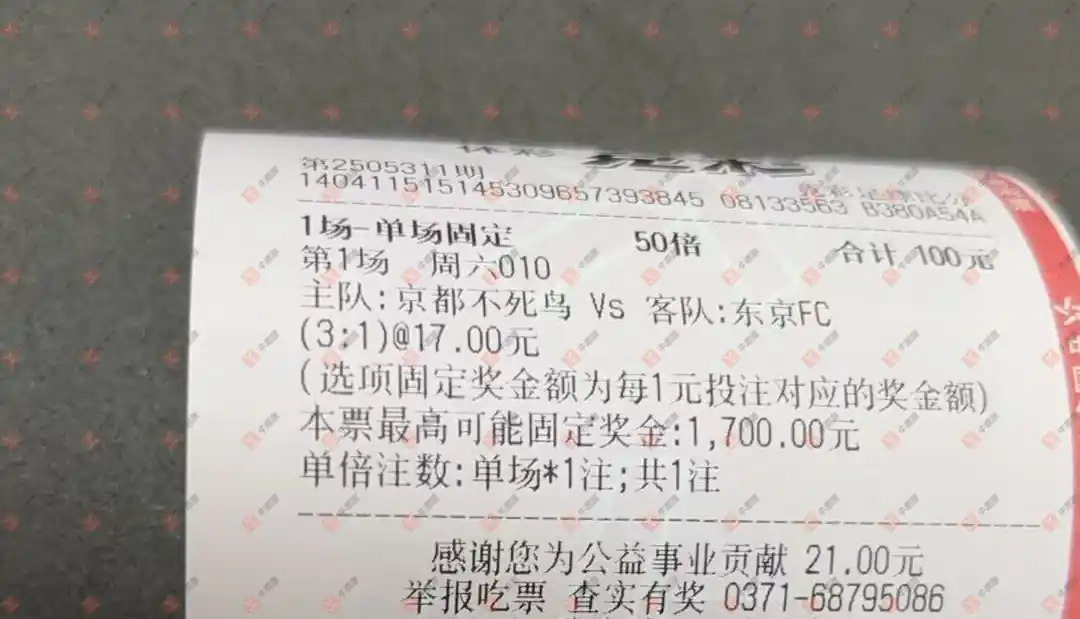 体彩 竞彩
第2505311期 竞彩足球比分
140411515145309657393845 08133563 B380A54A
1场-单场固定 50倍 合计 100元
第1场 周六010
主队:京都不死鸟 Vs 客队:东京FC
(3:1)@17.00元
(选项固定奖金额为每1元投注对应的奖金额)
本票最高可能固定奖金:1,700.00元
单倍注数:单场*1注;共1注
感谢您为公益事业贡献 21.00元
举报吃票 查实有奖 0371-68795086